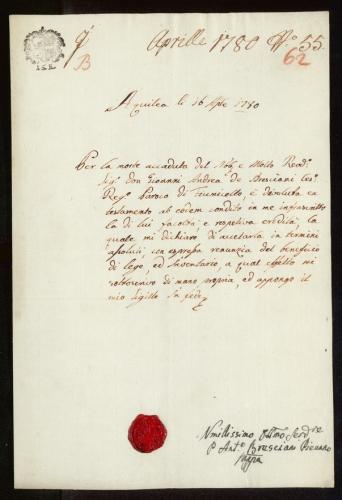 Aprille 1780 N.º 55.
B
62
Aquilea li 16 Aple 1780
Per la morte accaduta del Nob. e Molto Revd.
Sig. Don Giovanni Andrea de Bresciani Ces.
Reg. Paroco di Fiumicello, è devoluta ex
testamento ab eodem condito in me infrascritto
la di lui facoltà, e respetiva eredità, la
quale mi dichiaro di accetarla in termini
assoluti, con espressa renunzia del beneficio
di lege, ed Inventario, a qual effetto mi
sottoscrivo di mano propria, ed appongo il
mio sigillo In fede
Umillissimo Servre
P. Ant.º Bresciani